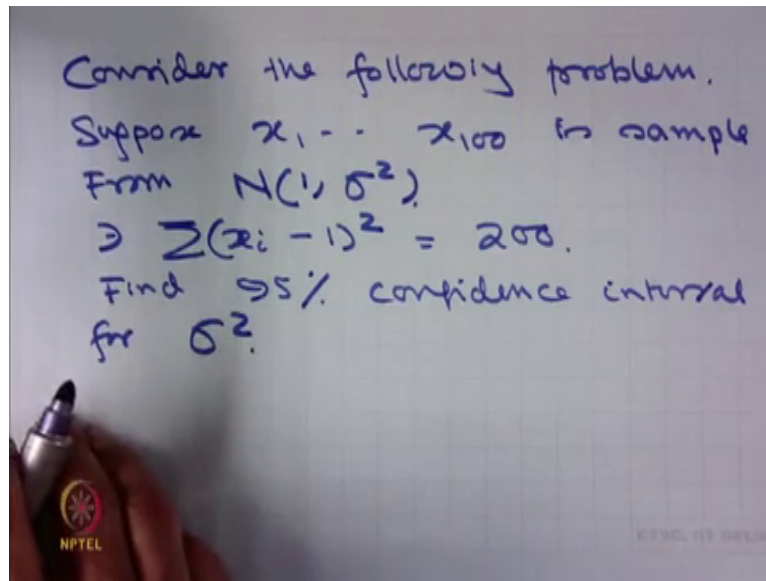 Consider the following problem.
Suppose x₁ -- x₁₀₀ is sample
From N(1, σ²)
∋ Σ(xᵢ - 1)² = 200.
Find 95% confidence interval
for σ².
NPTEL